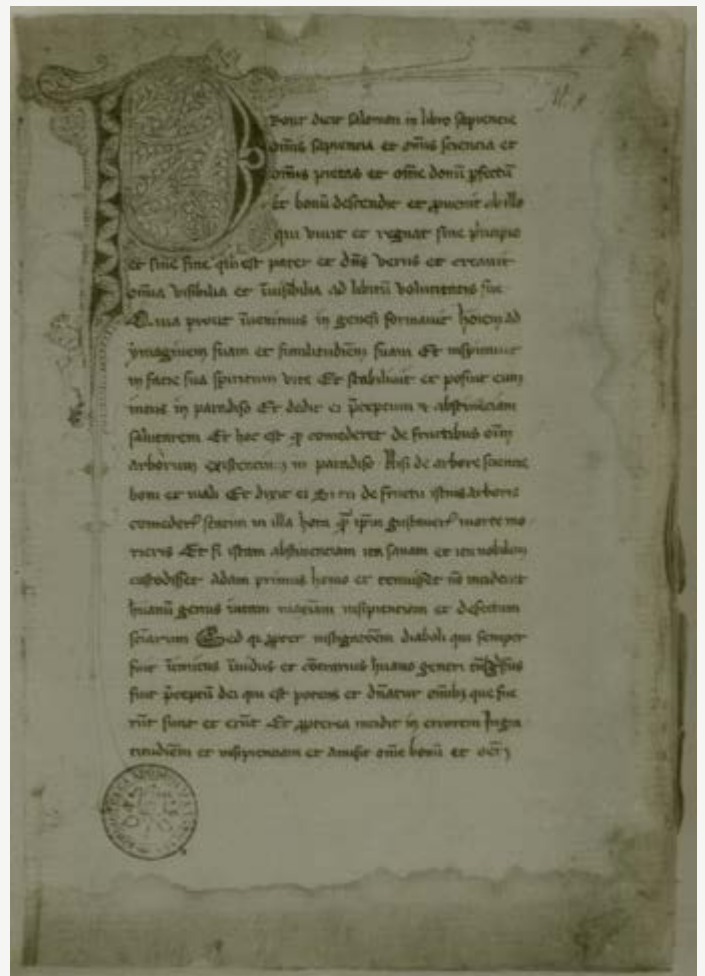 Prout dicit salomon in libro sapiencie
om̄is sapiencia et om̄is sciencia et
om̄is et om̄e donū ꝑfectū
et bonū descendit et ꝓuenit ab illo
qui viuit et regnat sine pͥncipio
et sine fine qui est pater et dn̄s verus et creauit
om̄ia visibilia et īuisibilia ad libitū voluntatis sue
Quia prout īuenimus in genesi formauit hoīem ad
ymaginem suam et similitudīem suam Et inspirauit
in facie sua spiritum vite Et stabiliuit et posuit eum
in paradiso Et dedit ei p̄ceptum et abstinēciam
salutarem Et hoc est ꝙ comederet de fructibus om̄
arborum existencium in paradiso Nisi de arbore sciencie
boni et mali Et dixit ei de fructu istius arboris
in illa hora morte mo
rieris Et si istam abstinenciam ita sanam et ita nobilem
custodisset Adam primus homo et tenuisset nō incidisset
huanū genus insipienciam et defectum
sciarum Sed diaboli qui semper
fuit īimicus īuidus et cōtrarius huano generi
fuit p̄ceptū dei qui est potens et dn̄atur om̄ibꝫ que fue
rūt sunt et erūt Et ꝓpterea incidit in errorem Ingra
titudīem et insipienciam et Amisit om̄e bonū et